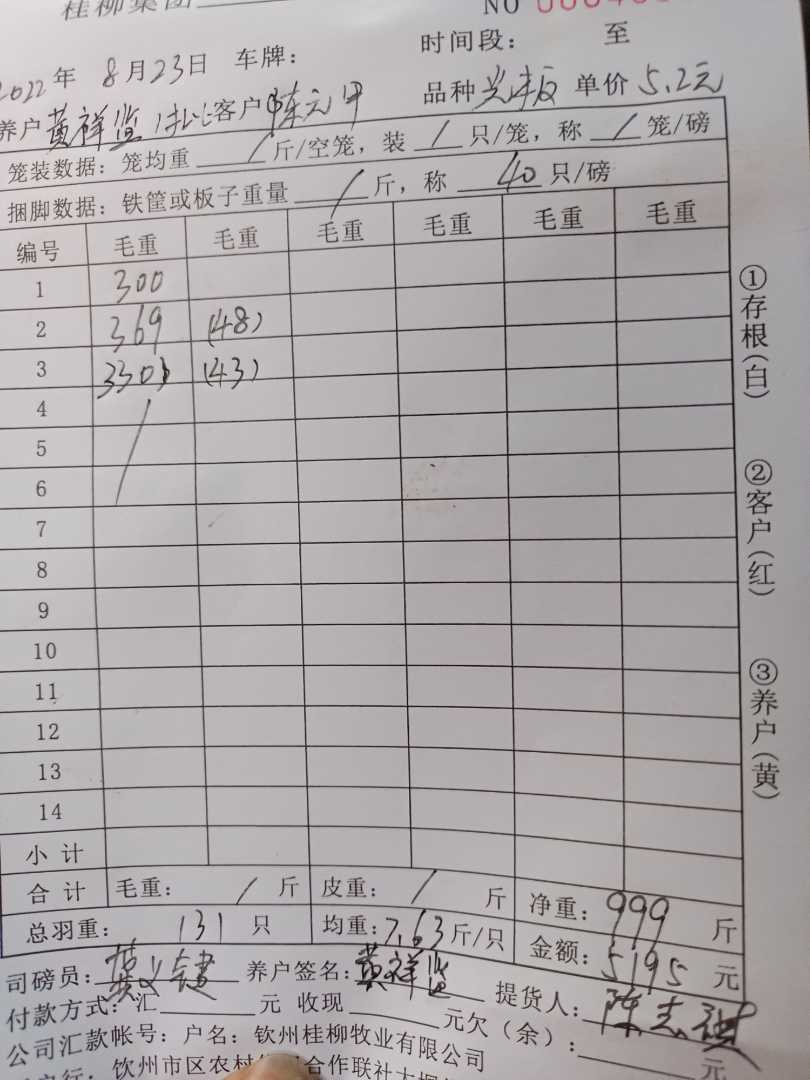 桂柳集团
NO
2022年 8月23日 车牌: 时间段: 至
养户 黄祥监 客户 陈元甲 品种 单价 5.2元
笼装数据: 笼均重 / 斤/空笼, 装 / 只/笼, 称 / 笼/磅
捆脚数据: 铁筐或板子重量 / 斤, 称 40 只/磅
编号 毛重 毛重 毛重 毛重 毛重 毛重
1 300
2 369 (48)
3 330 (43)
4
5
6
7
8
9
10
11
12
13
14
小计
合计 毛重: / 斤 皮重: / 斤 净重: 999 斤
总羽重: 131 只 均重: 7.63 斤/只 金额: 5195 元
司磅员: 黄 养户签名: 黄祥监 提货人: 陈志
付款方式: 汇 元 收现 元欠(余): 元
公司汇款帐号: 户名: 钦州桂柳牧业有限公司
钦州市区农村 合作联社大
①存根(白)
②客户(红)
③养户(黄)